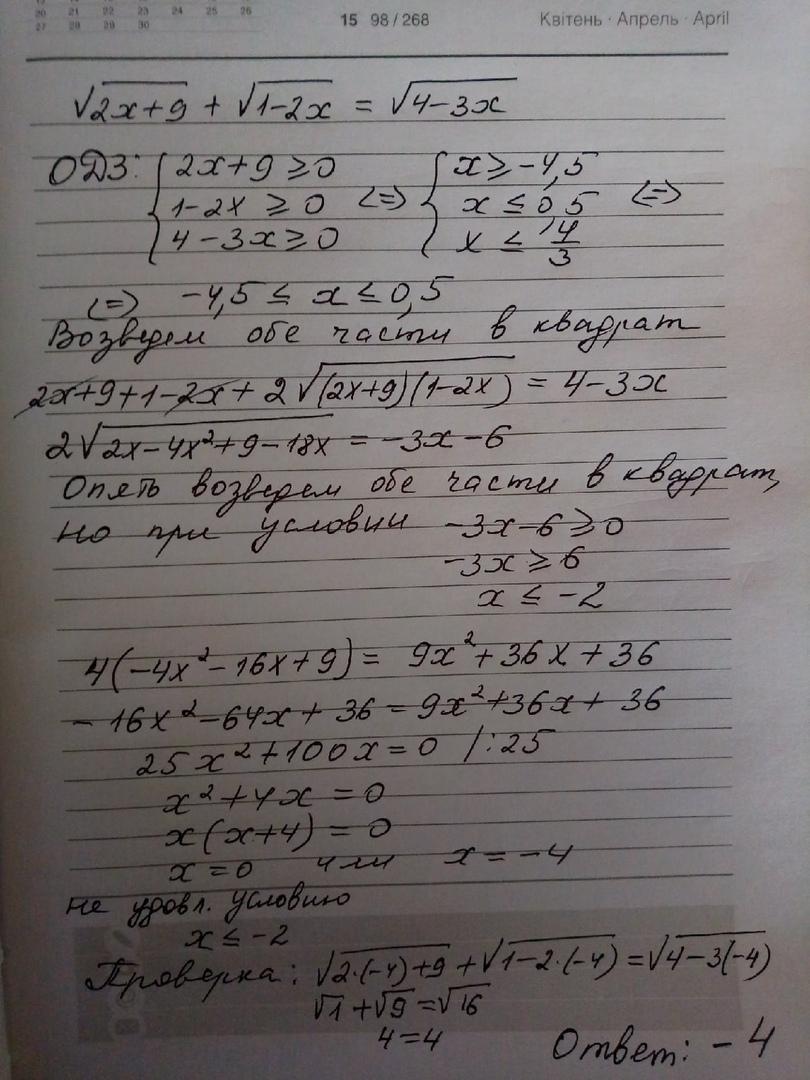 20 21 22 23 24 25 26
27 28 29 30
15 98/268
Квітень · Апрель · April
√2x+9 + √1-2x = √4-3x
ОДЗ: { 2x+9 ⩾ 0 { x ⩾ -4,5
1-2x ⩾ 0 <=> x ≤ 0,5 <=>
4-3x ⩾ 0 x ≤ 4/3
<=> -4,5 ≤ x ≤ 0,5
Возведем обе части в квадрат
2x+9+1-2x+2√(2x+9)(1-2x) = 4-3x
2√2x-4x²+9-18x = -3x-6
Опять возведем обе части в квадрат,
но при условии -3x-6 ⩾ 0
-3x ⩾ 6
x ≤ -2
4(-4x²-16x+9) = 9x²+36x+36
-16x²-64x+36 = 9x²+36x+36
25x²+100x=0 /:25
x²+4x=0
x(x+4)=0
x=0 или x=-4
не удовл. условию
x ≤ -2
Проверка: √2·(-4)+9 + √1-2·(-4) = √4-3(-4)
√1 + √9 = √16
4=4
Ответ: -4